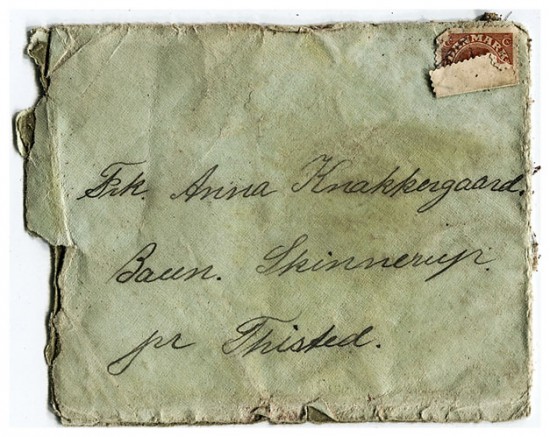 DANMARK
Frk. Anna Knakkergaard.
Baun. Skinnerup.
pr Thisted.